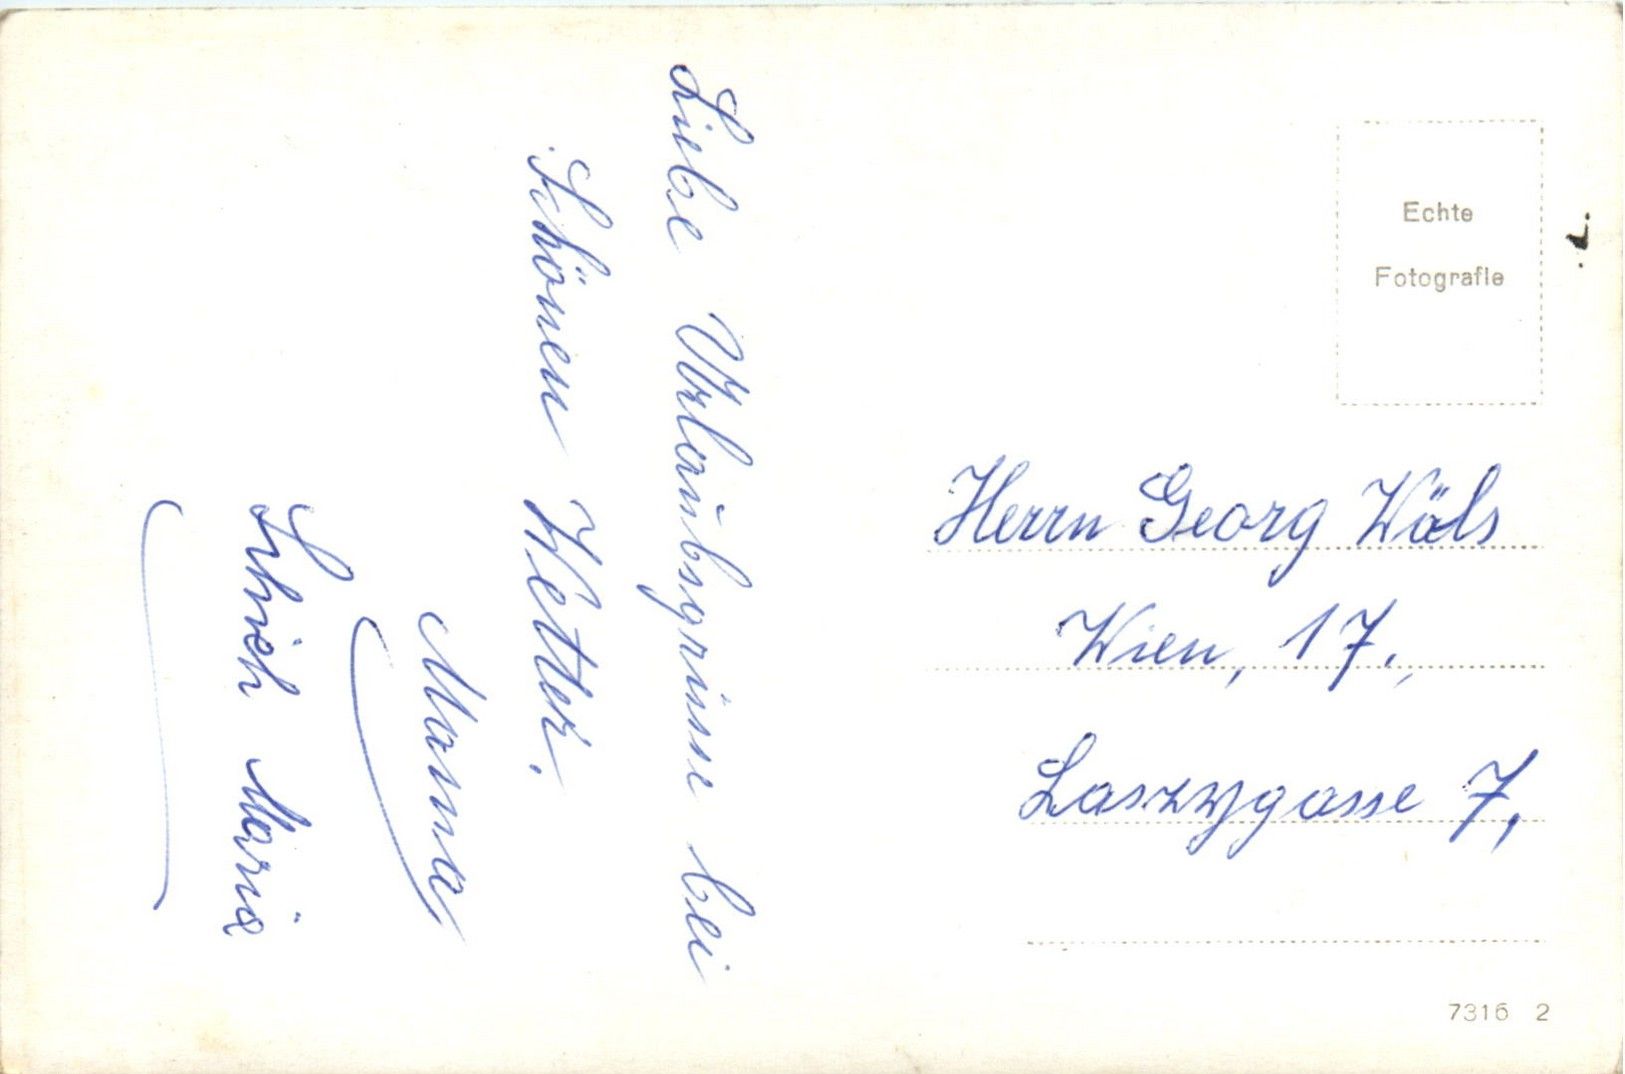 Liebe Urlaubsgrüsse bei
Schönen Wetter.
Mama
Maria
Echte
Fotografie
Herrn Georg Wöls
Wien, 17.,
Laszygasse 7,
7316 2